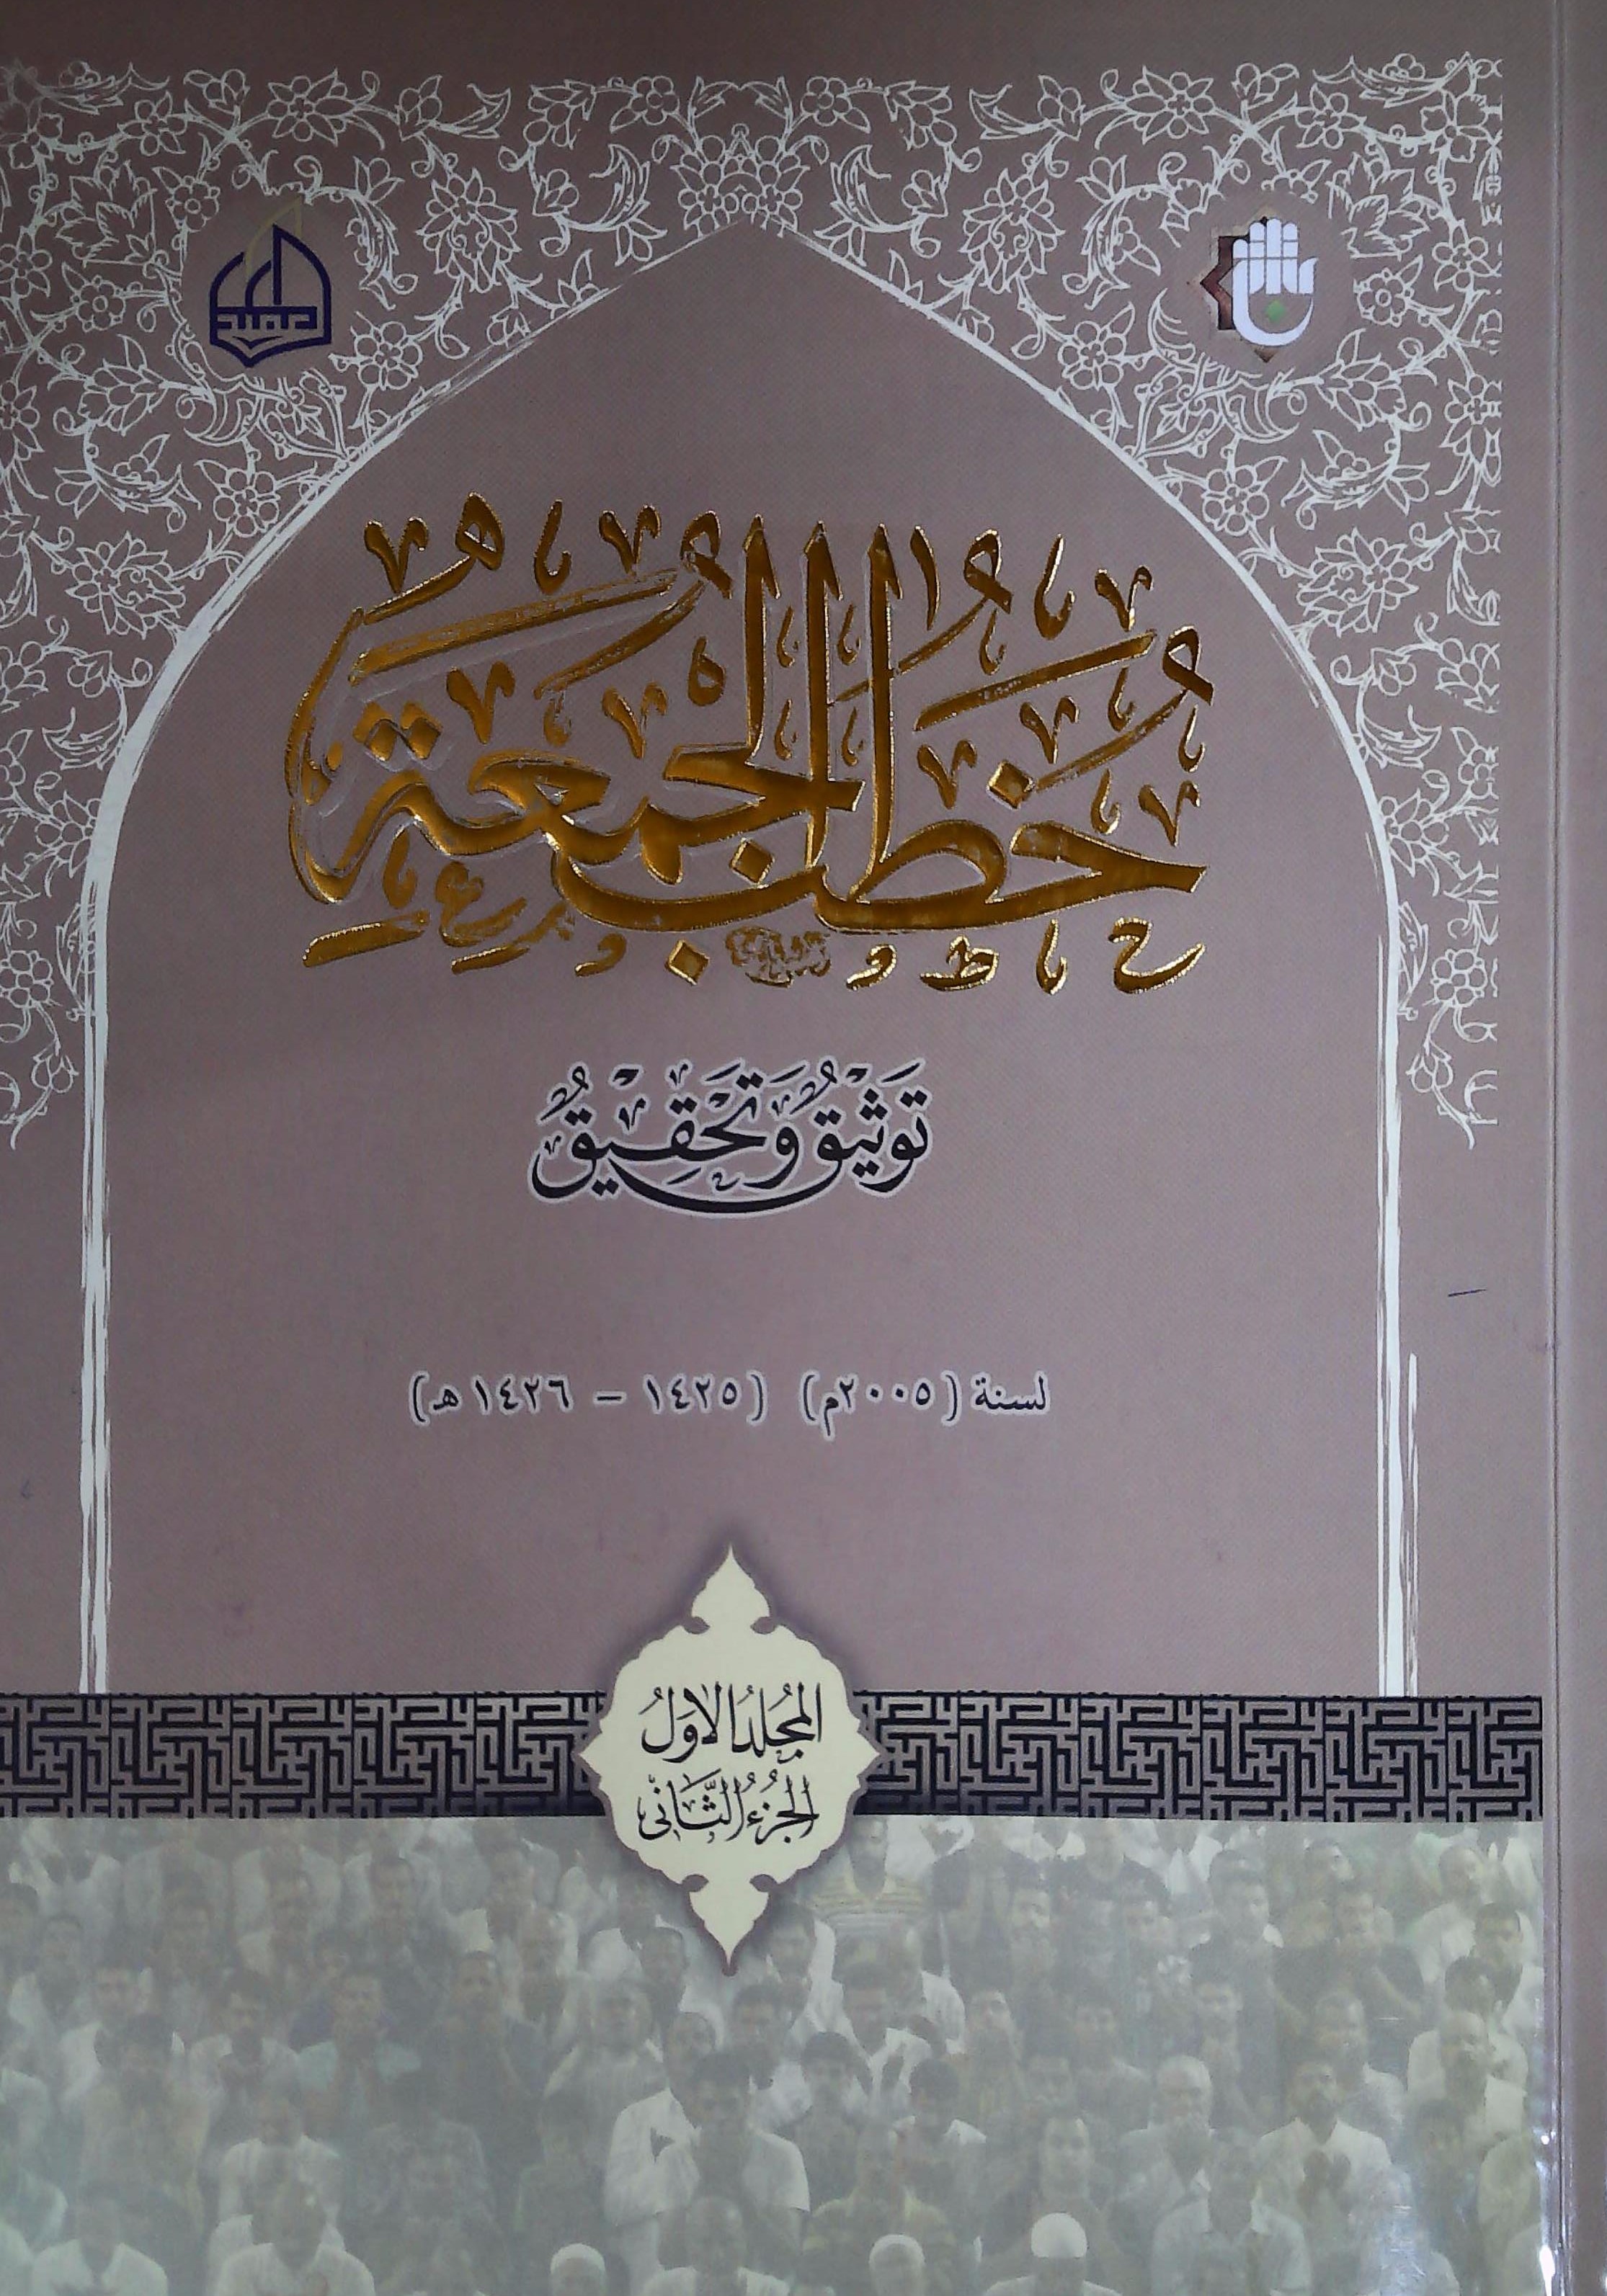 العميد
خُطَبُ الْجُمُعَةِ
تَوْثِيْقٌ وَتَحْقِيْقٌ
لسنة (٢٠٠٥م) (١٤٢٥ – ١٤٢٦ هـ)
المُجلدُ الاوَلُ
الجُزءُ الثَّانِي